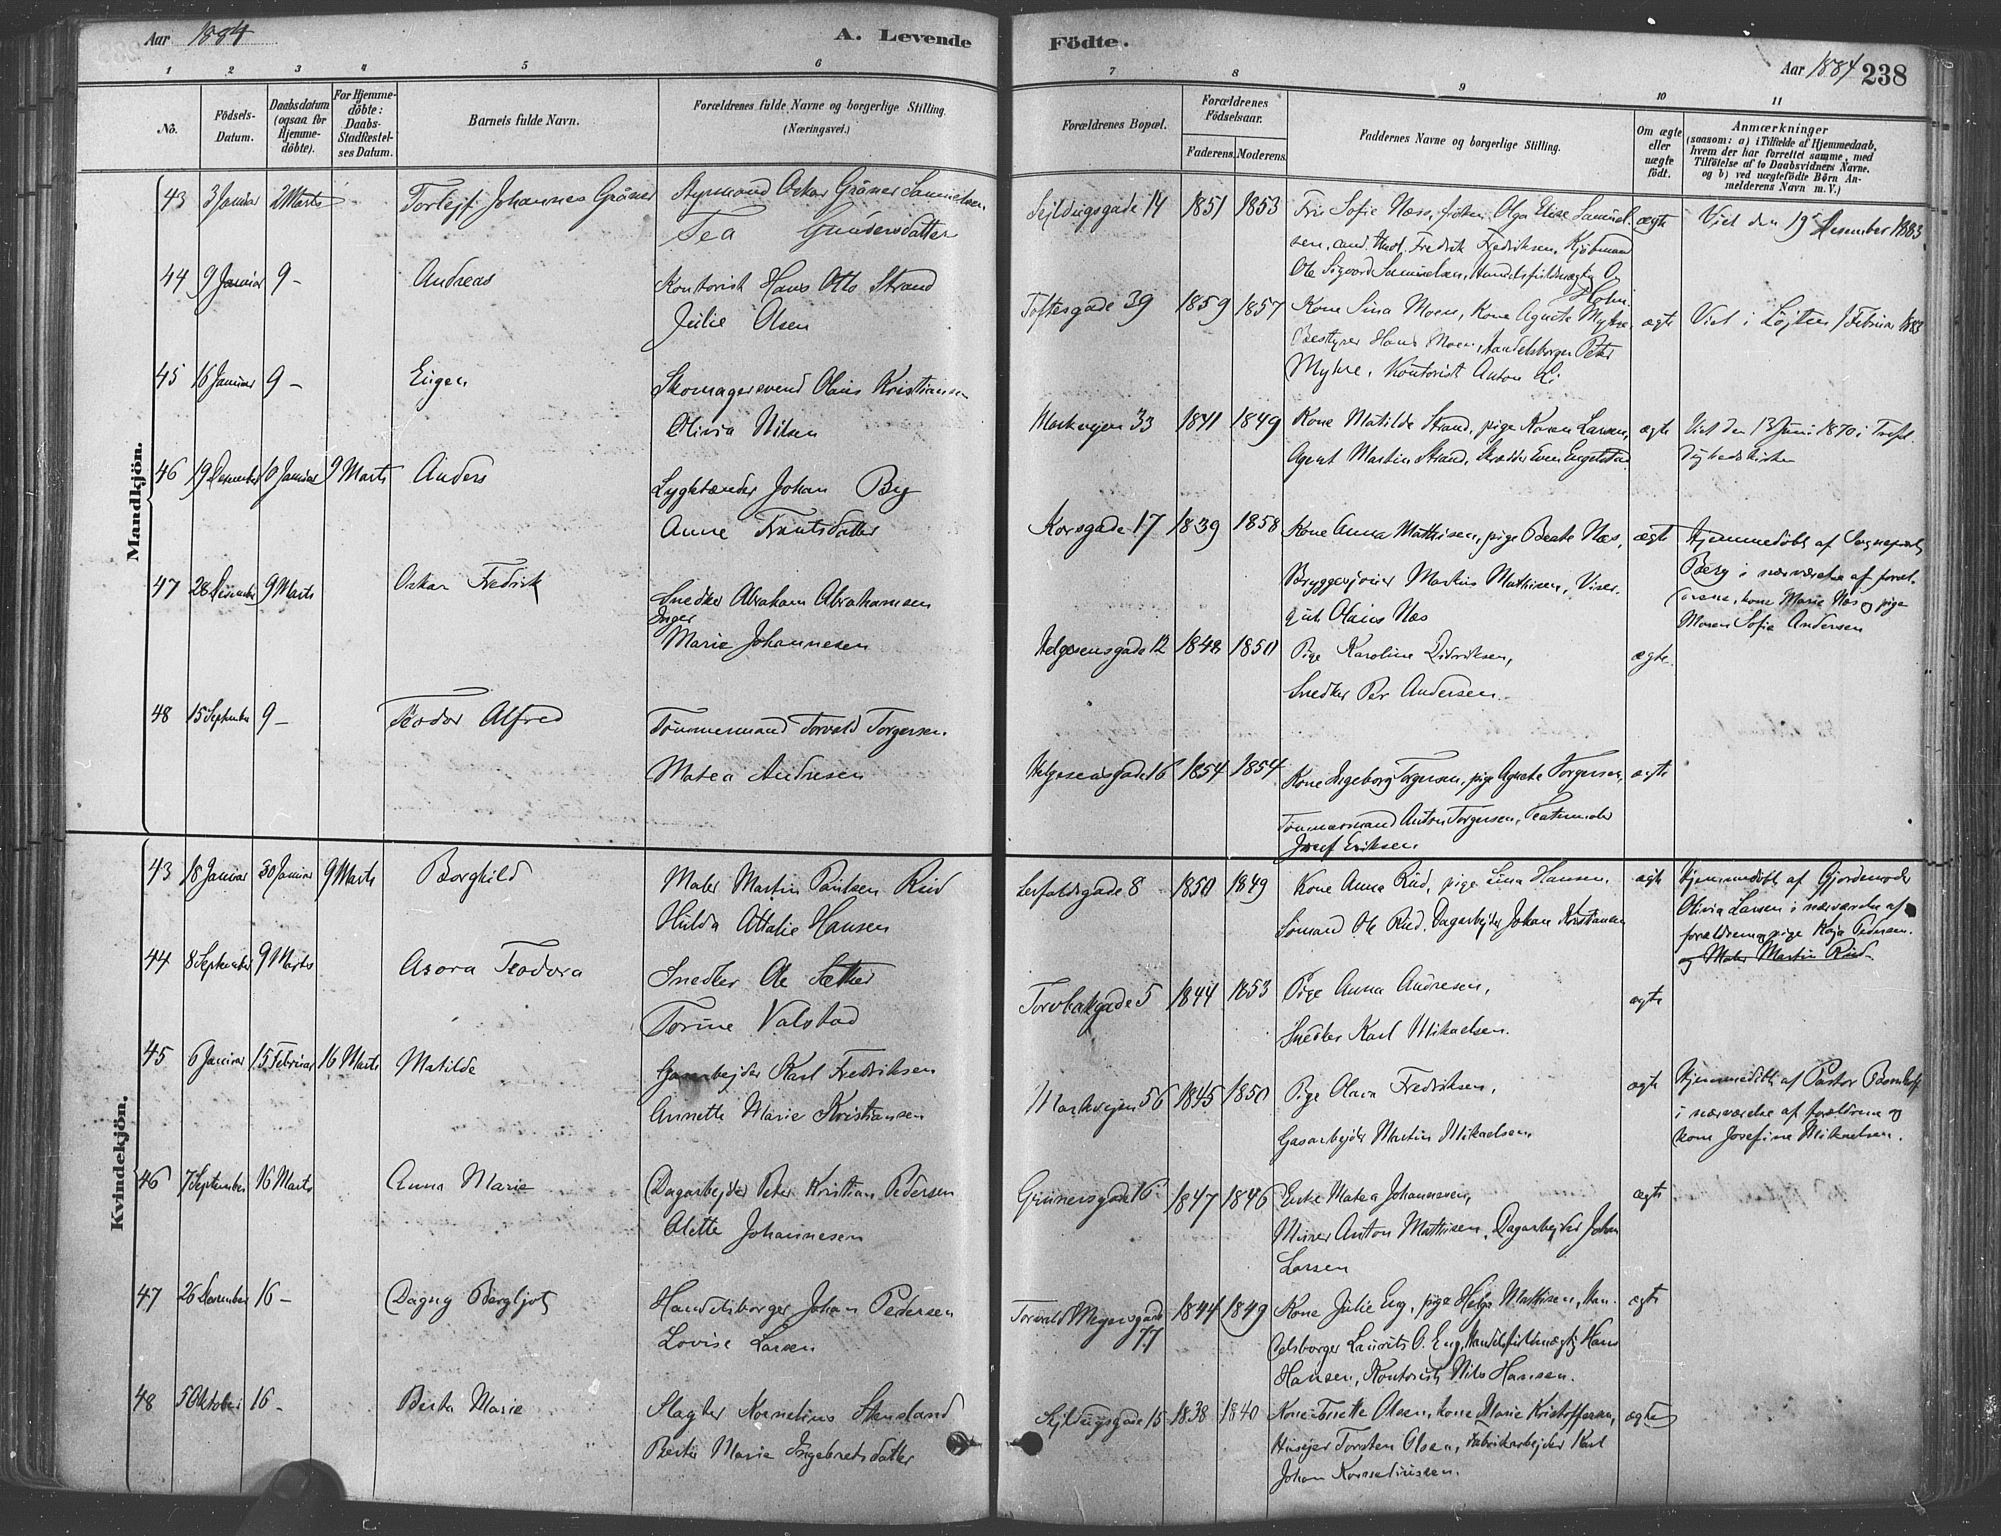 Aar 1884
A. Levende
Födte.
Aar 1884
238
1 2 3 4 5 6 7 8 9 10 11
No.
Födsels-
Datum.
Daabsdatum
(ogsaa for
Hjemme-
döbte).
For Hjemme-
döbte:
Daabs-
Stadfæstel-
ses Datum.
Barnets fulde Navn.
Forældrenes fulde Navne og borgerlige Stilling.
(Næringsvei.)
Forældrenes Bopæl.
Forældrenes
Födselsaar.
Faderens. Moderens.
Faddernes Navne og borgerlige Stilling.
Om ægte
eller
uægte
födt.
Anmærkninger
(saasom: a) i Tilfælde af Hjemmedaab,
hvem der har forrettet samme, med
Tilföielse af to Daabsvidners Navne.
og b) ved uægtefödte Börn An-
melderens Navn m. V.)
Mandkjön.
43 3 Januar 2 Marts Torleif Johannes Gräner Styrmand Oskar Gräner Samuelsen
Tea Gundersdatter
Sejldugsgade 14 1851 1853 Fru Sofie Næss, frøken Olga Elise Samuel-
sen, cand. theol. Fredrik Fredriksen, Kjöbmand
Ole Sigvard Samuelsen, Handelsfuldmægtig O.
Holm.
ægte Viet den 19 Desember 1883.
44 9 Januar 9 - Andreas Kontorist Hans Otto Strand
Julie Olsen
Toftesgade 39 1859 1857 Kone Sina Moen, Kone Agnete Myhre,
Bestyrer Hans Moen, Handelsborger Peter
Myhre, Kontorist Anton Li
ægte Viet i Löjten Februar 1883
45 16 Januar 9 - Eugen Skomagersvend Olaus Kristiansen
Olivia Nilsen
Markvejen 33 1841 1849 Kone Matilde Strand, pige Karen Larsen,
Agent Martin Strand, Skrædder Even Engelstad.
ægte Viet den 13 Juni 1870 i Trefol-
dighedskirken
46 19 Desember 10 Januar 9 Marts Anders Lygtetænder Johan Berg
Anne Frantsdatter
Korsgade 17 1839 1858 Kone Anna Mathisen, pige Beate Næs,
Bryggerjover Markus Mathisen, Viser-
gut Olaus Næs
ægte Hjemmedöbt af Sogneprest
Berg i nærværelse af foræl-
drene, kone Marie Næs og pige
Maren Sofie Andersen
47 28 Desember 9 Marts Oskar Fredrik Snedker Abraham Abrahamsen
Inger
Marie Johannesen
Helgesensgade 12 1848 1850 Pige Karoline Didriksen,
Snedker Per Andersen.
ægte.
48 15 September 9 - Teodor Alfred Tömmermand Torvald Torgersen.
Matea Andresen
Helgesensgade 16 1854 1854 Kone Ingeborg Torgersen, pige Agnete Torgersen,
Tömmermand Anton Torgersen,
Josef Eriksen.
ægte
Kvindekjön.
43 18 Januar 30 Januar 9 Marts Borghild Maler Martin Paulsen Rud
Hulda Attalie Hansen
Lerfaldsgade 8 1850 1849 Kone Anna Rud, pige Lina Hansen,
Sömand Ole Rud, Dagarbejder Johan Kristiansen
ægte Hjemmedöbt af Gjordemoder
Olivia Larsen i nærværelse af
forældrene og pige Kaja Pedersen.
og Maler Martin Rud
44 8 September 9 Marts Asora Teodora Snedker Ole Sæther
Torine Valstad
Torvbakgade 5 1844 1853 Pige Anna Andresen,
Snedker Karl Mikaelsen.
ægte
45 6 Januar 15 Februar 16 Marts Matilde Gasarbejder Karl Fredriksen
Annette Marie Kristiansen
Markvejen 56 1845 1850 Pige Olava Fredriksen,
Gasarbejder Martin Mikaelsen.
ægte Hjemmedöbt af Pastor
i nærværelse af forældrene og
kone Josefine Mikaelsen.
46 7 September 16 Marts Anna Marie Dagarbejder Peter Kristian Pedersen
Olette Johannesen
Grünersgade 16 1847 1846 Enke Matea Johannesen,
Murer Anton Mathisen, Dagarbejder Johan
Larsen
ægte
47 26 Desember 16 - Dagny Bergljot Handelsborger Johan Pedersen
Lovise Larsen
Torvald Meyersgade
77
1844 1849 Kone Julie Eng, pige Helga Mathisen, Han-
delsborger Laurits O. Eng, Handelsfuldmægtig Hans
Hansen, Kontorist Nils Hansen.
ægte
48 5 Oktober 16 - Berta Marie Slagter Kornelius Stensland
Berte Marie Ingebretsdatter
Sejldugsgade 15 1838 1840 Kone Olsen, kone Marie Kristoffersen,
Husejer Torsten Olsen, Fabrikarbejder Karl
Johan Korneliussen.
ægte